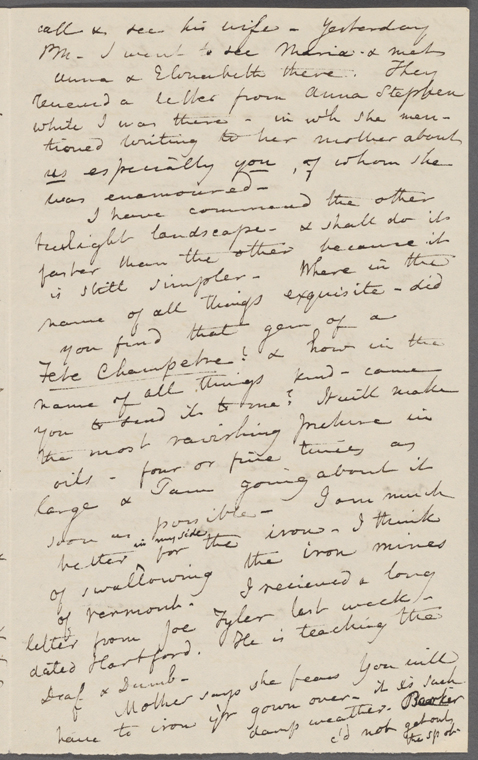 call & see his wife - Yesterday
P.M. I went to see Maria & met
Anna & Elizabeth there. They
received a letter from Anna Stephen
while I was there - in wh she men-
tioned writing to her mother about
us especially you, of whom she
was enamoured -
I have commenced the other
twilight landscape - & shall do it
faster than the other because it
is still simpler - Where in the
name of all things exquisite - did
you find that gem of a
Fete Champetre? & how in the
name of all things kind - came
you to send it to me? It will make
the most ravishing picture in
oils - four or five times as
large & I am going about it
soon as possible - I am much
better in my side, for the iron - I think
of swallowing the iron mines
of Vermont. I recieved a long
letter from Joe Tyler last week -
dated Hartford. He is teaching the
Deaf & Dumb -
Mother says she fears you will
have to iron yr gown over - it is such
damp weather -
c'd not get out
the sp or